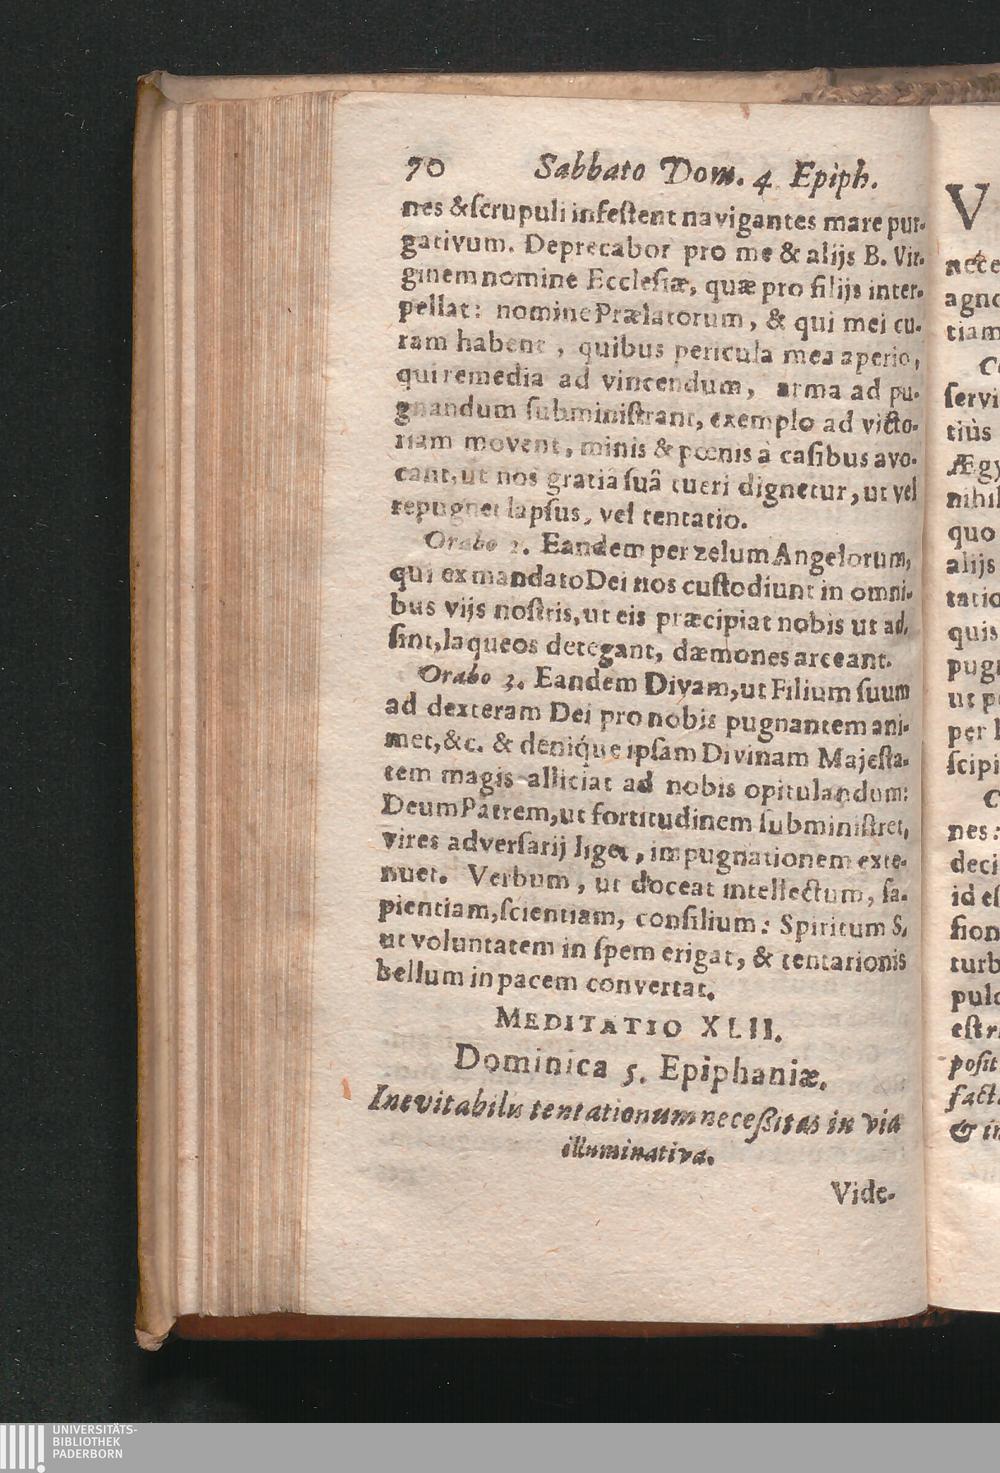 70 Sabbato Dom. 4 Epiph.
nes &ſcrupuli infeſtent navigantes mare pur-
gativum. Deprecabor pro me & alijs B. Vir-
ginem nomine Eccleſiæ, quæ pro filijs inter-
pellat: nomine Prælatorum, & qui mei cu-
ram habent, quibus pericula mea aperio,
qui remedia ad vincendum, arma ad pu-
gnandum ſubminiſtrant, exemplo ad victo-
riam movent, minis & pœnis à caſibus avo-
cant, ut nos gratia ſuâ tueri dignetur, ut vel
repugnet lapſus, vel tentatio.
Orabo 2. Eandem per zelum Angelorum,
qui ex mandato Dei nos cuſtodiunt in omni-
bus vijs noſtris, ut eis præcipiat nobis ut ad-
ſint, laqueos detegant, dæmones arceant.
Orabo 3. Eandem Divam, ut Filium ſuum
ad dexteram Dei pro nobis pugnantem ani-
met, &c. & denique ipſam Divinam Majeſta-
tem magis alliciat ad nobis opitulandum:
Deum Patrem, ut fortitudinem ſubminiſtret,
vires adverſarij liget, impugnationem exte-
nuet. Verbum, ut doceat intellectum, ſa-
pientiam, ſcientiam, conſilium: Spiritum S.
ut voluntatem in ſpem erigat, & tentationis
bellum in pacem convertat.
MEDITATIO XLII.
Dominica 5. Epiphaniæ.
Inevitabilis tentationum neceßitas in via
illuminativa.
Vide-
V
nece
agno
tiam
ſervi
tiùs
Ægy
nihil
quo
alijs
tatio
quis
pug
ut p
per
ſcipi
C
nes:
deci
id eſ
ſion
turb
pulc
eſtr
poſit
fact
& in
UNIVERSITÄTS-
BIBLIOTHEK
PADERBORN